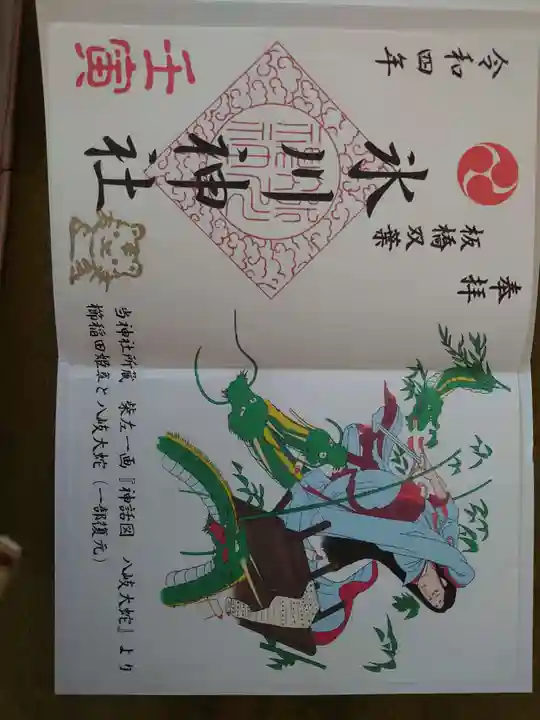 奉拝
板橋双葉
氷川神社
令和四年
壬寅
当神社所蔵 柴左一画『神話図 八岐大蛇』より
櫛稲田姫立と八岐大蛇(一部復元)